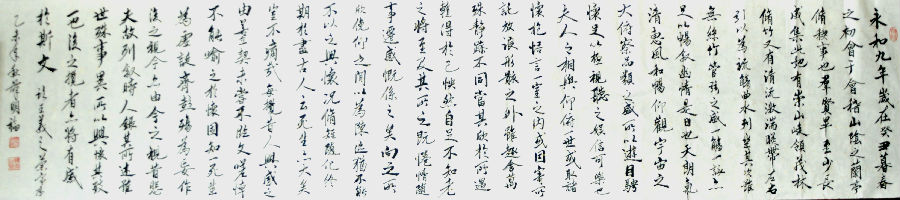 永和九年歲在癸丑暮春
之初會于會稽山陰之蘭亭
脩稧事也羣賢畢至少長
咸集此地有崇山峻領茂林
脩竹又有清流激湍暎帶左右
引以為流觴曲水列坐其次雖
無絲竹管弦之盛一觴一詠亦
足以暢敘幽情是日也天朗氣
清惠風和暢仰觀宇宙之
大俯察品類之盛所以遊目騁
懷足以極視聽之娛信可樂也
夫人之相與俯仰一世或取諸
懷抱悟言一室之內或因寄所
託放浪形骸之外雖趣舍萬
殊靜躁不同當其欣於所遇
暫得於己怏然自足不知老
之將至及其所之既惓情隨
事遷感慨係之矣向之所
欣俛仰之間以為陳迹猶不能
不以之興懷況脩短隨化終
期於盡古人云死生亦大矣
豈不痛哉每攬昔人興感之
由若合一契未嘗不臨文嗟悼
不能喻之於懷固知一死生
為虛誕齊彭殤為妄作
後之視今亦由今之視昔悲
夫故列敘時人錄其所述雖
世殊事異所以興懷其致
一也後之攬者亦將有感
於斯文
乙未年